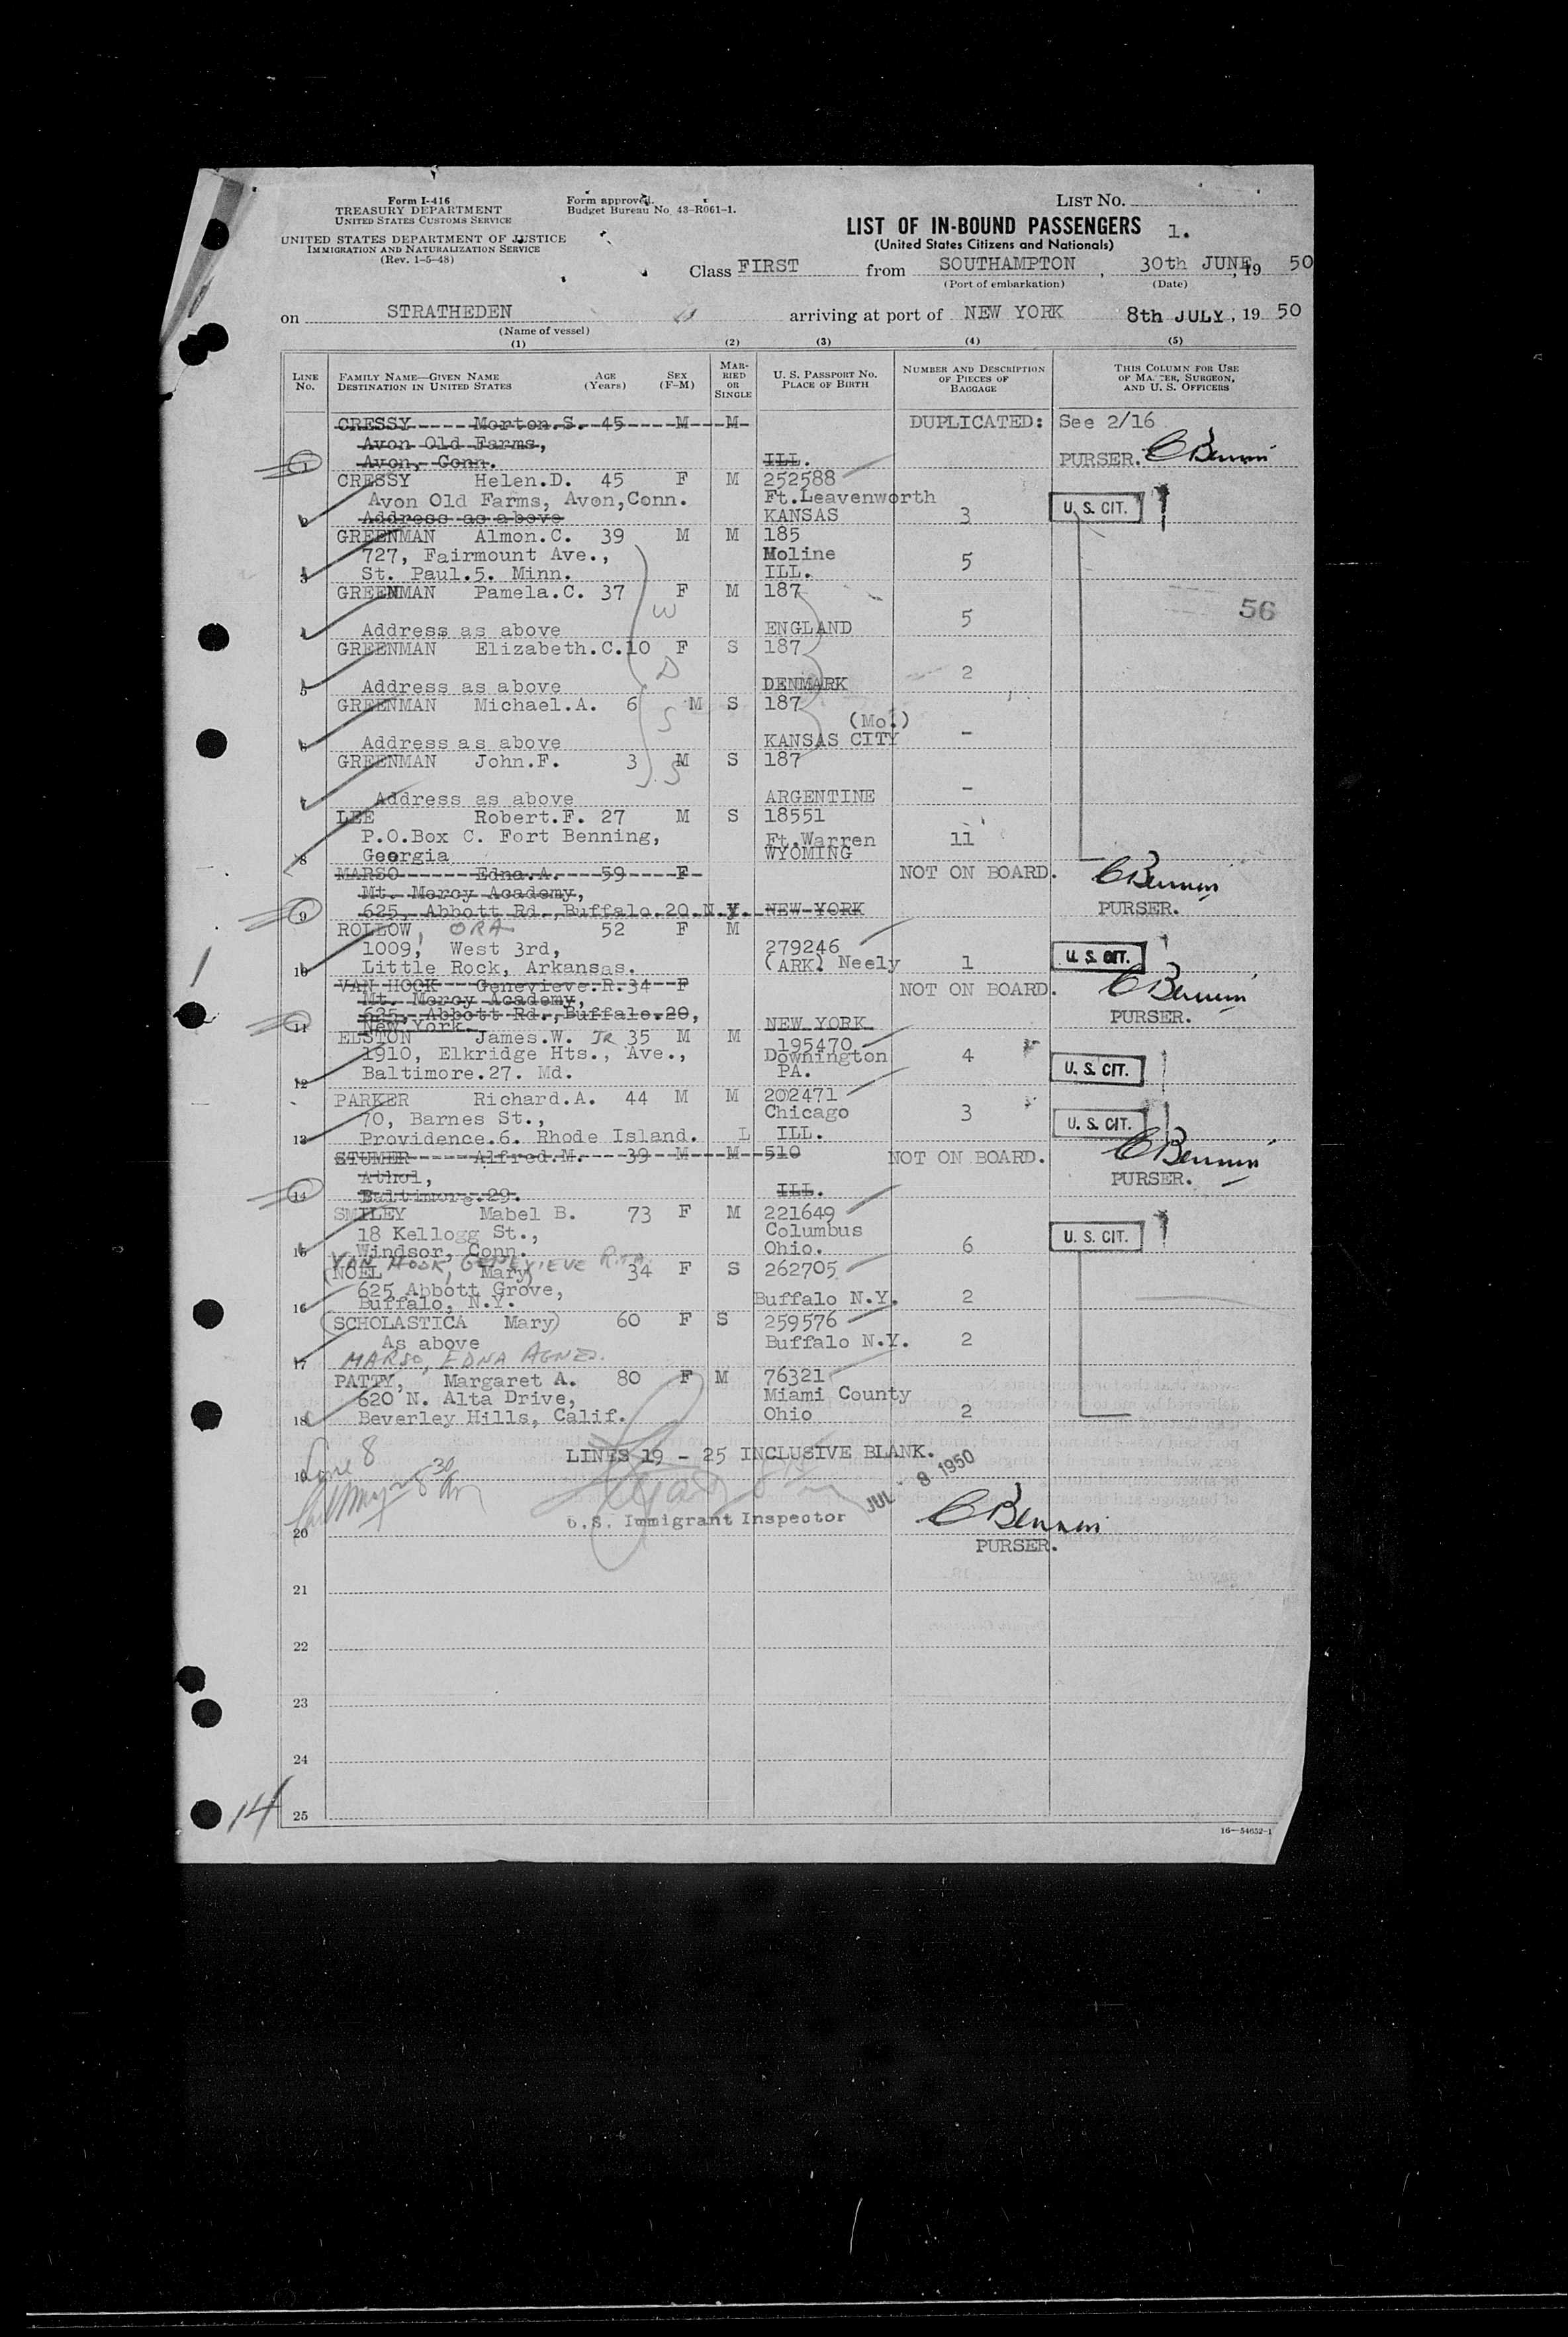 Form I-416
TREASURY DEPARTMENT
UNITED STATES CUSTOMS SERVICE
Form approved.
Budget Bureau No. 43-R061-1.
LIST No.
UNITED STATES DEPARTMENT OF JUSTICE
IMMIGRATION AND NATURALIZATION SERVICE
(Rev. 1-5-48)
LIST OF IN-BOUND PASSENGERS 1.
(United States Citizens and Nationals)
Class FIRST from SOUTHAMPTON, 30th JUNE, 19 50
(Port of embarkation) (Date)
on STRATHEDEN arriving at port of NEW YORK 8th JULY, 19 50
(Name of vessel)
(1) (2) (3) (4) (5)
LINE No. FAMILY NAME—GIVEN NAME DESTINATION IN UNITED STATES AGE (Years) SEX (F-M) MARRIED OR SINGLE U. S. PASSPORT NO. PLACE OF BIRTH NUMBER AND DESCRIPTION OF PIECES OF BAGGAGE THIS COLUMN FOR USE OF MASTER, SURGEON, AND U. S. OFFICERS
CRESSY Morton.S. 45 M M DUPLICATED: See 2/16
Avon Old Farms,
1 Avon, Conn. ILL. PURSER. C Bennin
CRESSY Helen.D. 45 F M 252588
Avon Old Farms, Avon,Conn. Ft.Leavenworth
2 Address as above KANSAS 3 U. S. CIT.
GREENMAN Almon.C. 39 M M 185
727, Fairmount Ave., Moline 5
3 St. Paul.5. Minn. ILL.
GREENMAN Pamela.C. 37 F M 187
W 5 56
4 Address as above ENGLAND
GREENMAN Elizabeth.C.10 F S 187
D 2
5 Address as above DENMARK
GREENMAN Michael.A. 6 M S 187
S (Mo.)
6 Address as above KANSAS CITY -
GREENMAN John.F. 3 M S 187
S
7 Address as above ARGENTINE -
LEE Robert.F. 27 M S 18551
P.O.Box C. Fort Benning, Ft.Warren 11
8 Georgia WYOMING
MARSO Edna.A. 59 F NOT ON BOARD. C Bennin
Mt. Mercy Academy,
9 625, Abbott Rd.,Buffalo.20.N.Y. NEW YORK PURSER.
ROLLOW, ORA 52 F M
1009, West 3rd, 279246
10 Little Rock, Arkansas. (ARK) Neely 1 U. S. CIT.
VAN HOOK Genevieve.R.34 F NOT ON BOARD. C Bennin
Mt. Mercy Academy,
625, Abbott Rd.,Buffalo.20, PURSER.
11 New York. NEW YORK
ELSTON James.W. JR 35 M M 195470
1910, Elkridge Hts., Ave., Downington 4
12 Baltimore.27. Md. PA. U. S. CIT.
PARKER Richard.A. 44 M M 202471
70, Barnes St., Chicago 3
13 Providence.6. Rhode Island. L ILL. U. S. CIT.
STUMER Alfred.M. 39 M M 510 NOT ON BOARD. C Bennin
Athol, PURSER.
14 Baltimore.29. ILL.
SMILEY Mabel B. 73 F M 221649
18 Kellogg St., Columbus
15 Windsor, Conn. Ohio. 6 U. S. CIT.
VAN HOOK, GENEVIEVE RITA
(NOEL, Mary) 34 F S 262705
625 Abbott Grove,
16 Buffalo, N.Y. Buffalo N.Y. 2
(SCHOLASTICA Mary) 60 F S 259576
As above Buffalo N.Y. 2
17 MARSO, EDNA AGNES.
PATTY, Margaret A. 80 F M 76321
620 N. Alta Drive, Miami County
18 Beverley Hills, Calif. Ohio 2
Line 8
LINES 19 - 25 INCLUSIVE BLANK.
19
JUL - 8 1950
U.S. Immigrant Inspector
C Bennin
20
PURSER.
21
22
23
24
14
25
16—54652-1